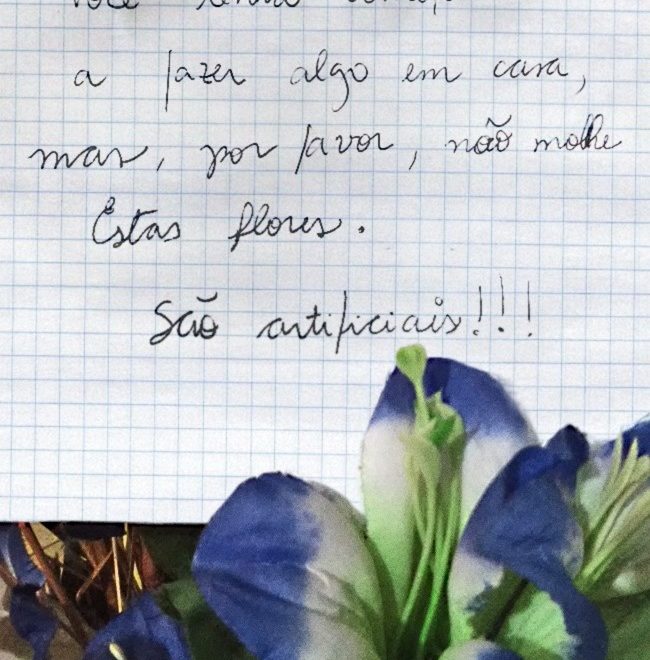 a fazer algo em casa,
mas, por favor, não molhe
Estas flores.
São artificiais!!!